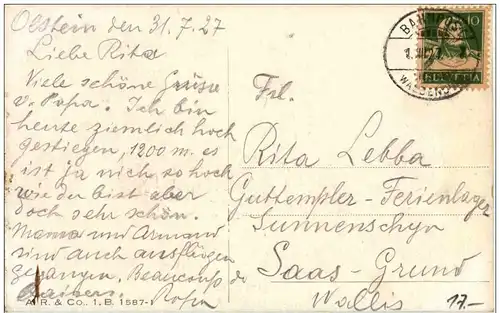 Olstein den 31.7.27
Liebe Rita
Viele schöne Grüsse
v. Papa. Ich bin
heute ziemlich hoch
gestiegen, 1200 m. es
ist ja nich so hoch
wie du bist aber
doch sehr schön.
Mama und Armand
sind auch ausflügen
gegangen. Beaucoup de
Baisers. Papa
A. R. & Co., 1. B. 1587-1
10
HELVETIA
Frl.
Rita Lebba
Guttempler-Ferienlager
Sunnenschyn
Saas-Grund
Wallis
17.-